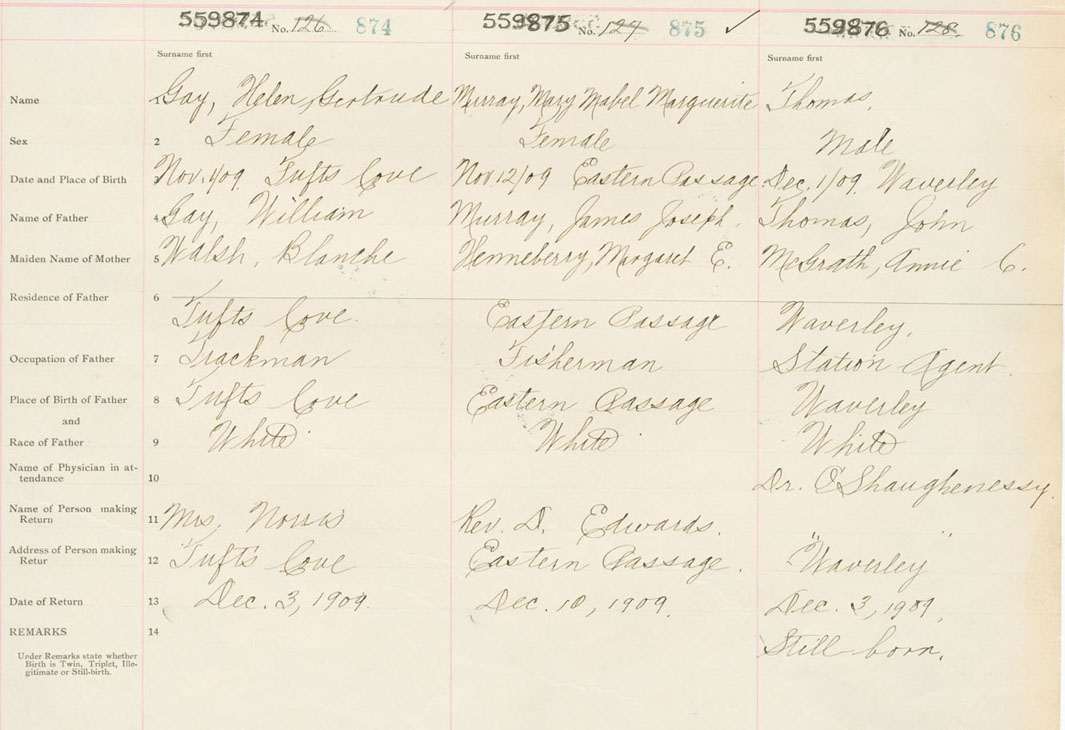 559874 No. 126 874 559875 No. 127 875 ✓ 559876 No. 128 876
Surname first Surname first Surname first
Name 1 Gay, Helen Gertrude Murray, Mary Mabel Marguerite Thomas.
Sex 2 Female Female Male
Date and Place of Birth 3 Nov. 1/09. Tufts Cove Nov. 12/09 Eastern Passage Dec. 1/09. Waverley
Name of Father 4 Gay, William Murray, James Joseph. Thomas, John
Maiden Name of Mother 5 Walsh, Blanche Henneberry, Margaret E. McGrath, Annie C.
Residence of Father 6 Tufts Cove. Eastern Passage Waverley,
Occupation of Father 7 Trackman Fisherman Station Agent.
Place of Birth of Father 8 Tufts Cove Eastern Passage Waverley
and
Race of Father 9 White White White
Name of Physician in at-
tendance 10 Dr. O'Shaughenessy.
Name of Person making
Return 11 Mrs. Norris Rev. D. Edwards. " "
Address of Person making
Retur 12 Tufts Cove Eastern Passage. Waverley
Date of Return 13 Dec. 3, 1909. Dec. 10, 1909. Dec. 3, 1909.
REMARKS 14 Still born.
Under Remarks state whether
Birth is Twin, Triplet, Ille-
gitimate or Still-birth.